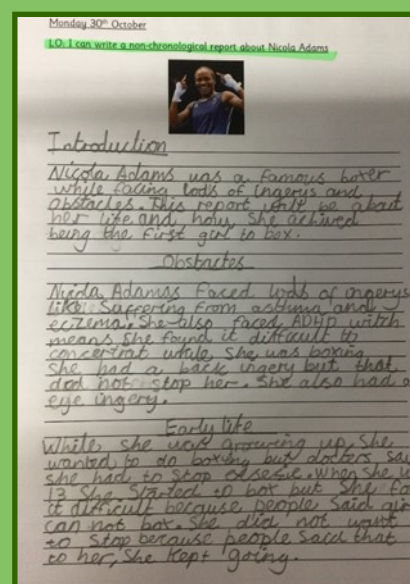 Monday 30th October
LO: I can write a non-chronological report about Nicola Adams
Introduction
Nicola Adams was a famous boxer
while facing lods of ingerys and
obstacles. This report will be about
her life and how she achived
being the first girl to box.
Obstacles
Nicola Adamas faced lods of ingerys
like Saffering from asthma and
eczema. She also faced ADHD witch
means She found it difficult to
concertrat while She was boxing
She had a back ingery but that
did not stop her. She also had a
eye ingery.
Early life
While she was growing up, She
wanted to do boxing but doctors sai
she had to Stop
When she w
13 She Started to box but She fo
it difficult because people Said gir
can not box. She did not want
to Stop because people Said that
to her, She Kept going.